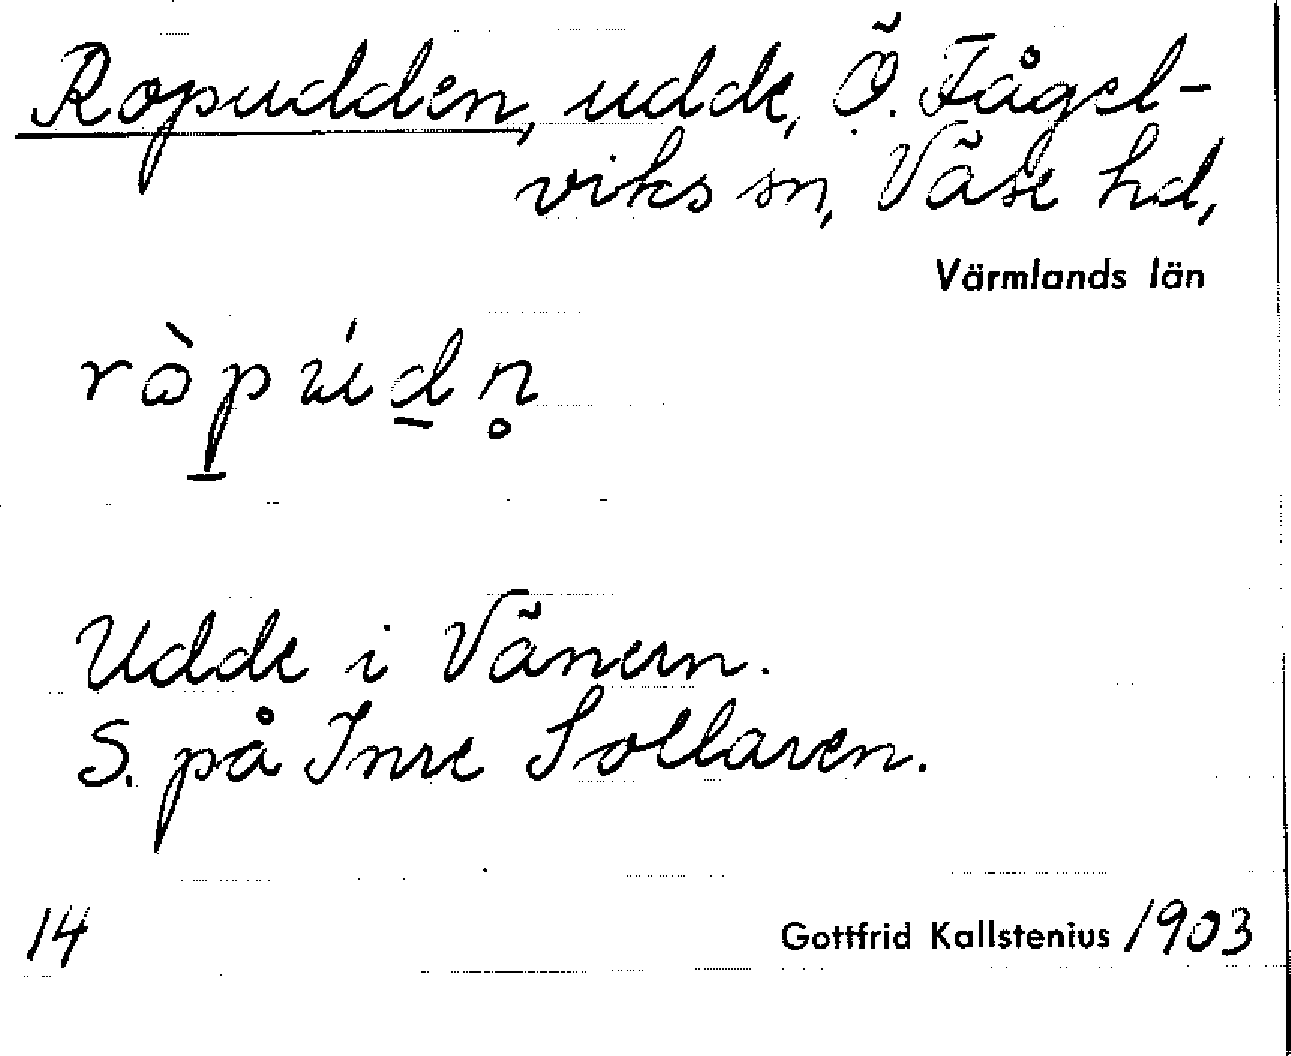 Ropudden, udde, Ö. Fågel-
viks sn, Väse hd,
Värmlands län
ròpúdn̥
Udde i Vänern.
S. på Inre Sollaren.
14 Gottfrid Kallstenius /1903